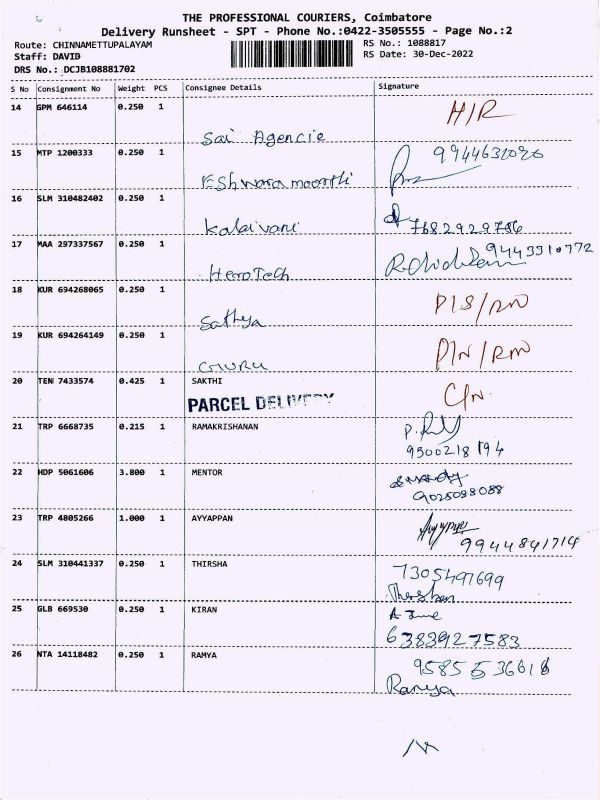 THE PROFESSIONAL COURIERS, Coimbatore
Delivery Runsheet - SPT - Phone No.:0422-3505555 - Page No.:2
Route: CHINNAMETTUPALAYAM
RS No.: 1088817
Staff: DAVID
RS Date: 30-Dec-2022
DRS No.: DCJB108881702
S No Consignment No Weight PCS Consignee Details Signature
14 GPM 646114 0.250 1
H/R
Sai Agencie
15 MTP 1200333 0.250 1
Eshwara moorthi
16 SLM 310482402 0.250 1
Kalaivani
7682929786
17 MAA 297337567 0.250 1
HeroTech
9443310772
18 KUR 694268065 0.250 1
Sathya
19 KUR 694264149 0.250 1
GURU
20 TEN 7433574 0.425 1 SAKTHI
PARCEL DELIVERY
21 TRP 6668735 0.215 1 RAMAKRISHANAN
9500218194
22 HDP 5061606 3.800 1 MENTOR
9025098088
23 TRP 4805266 1.000 1 AYYAPPAN
9944841714
24 SLM 310441337 0.250 1 THIRSHA
7305497699
25 GLB 669530 0.250 1 KIRAN
6383927583
26 NTA 14118482 0.250 1 RAMYA
9585536618
Ramya